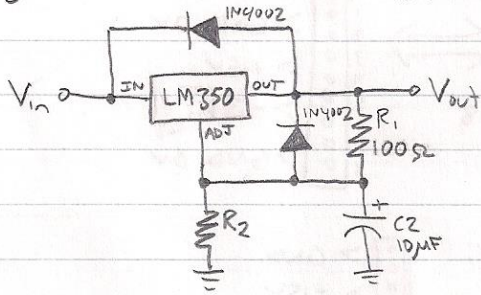 1N4002
Vin
IN
LM350
OUT
Vout
ADJ
1N4002
R1
100Ω
R2
+
C2
10μF